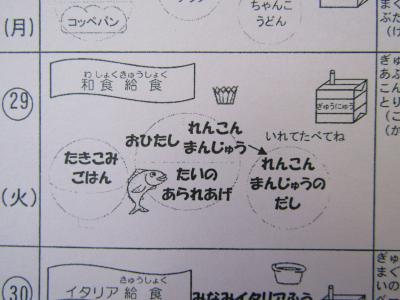 (月)
コッペパン
ちゃんこ
うどん
29
(火)
わしょくきゅうしょく
和食給食
ぎゅうにゅう
おひたし
れんこん
まんじゅう
いれてたべてね
たきこみ
ごはん
たいの
あられあげ
れんこん
まんじゅうの
だし
30
きゅうしょく
イタリア給食
みなみイタリアふう